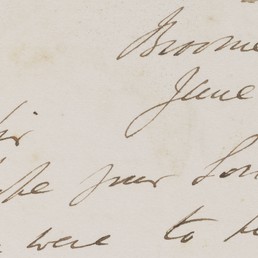 Broome
June
Sir
your Lor
were to